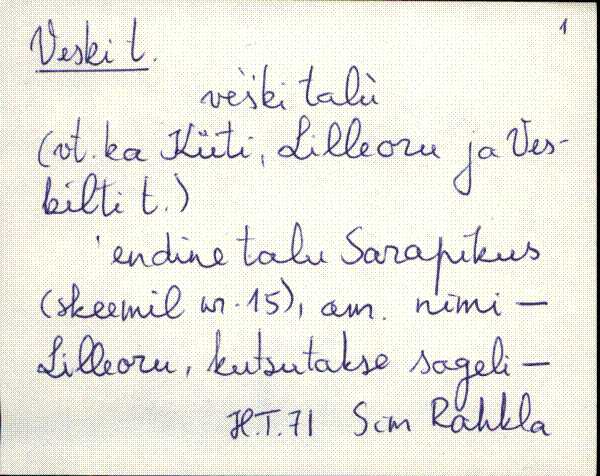 1
Veski t.
vèški talù
(vt. ka Küti, Lilleoru ja Ves-
kilti t.)
'endine talu Sarapikus
(skeemil nr. 15), am. nimi –
Lilleoru, kutsutakse sageli –
H.T. 71 Sim Rahkla